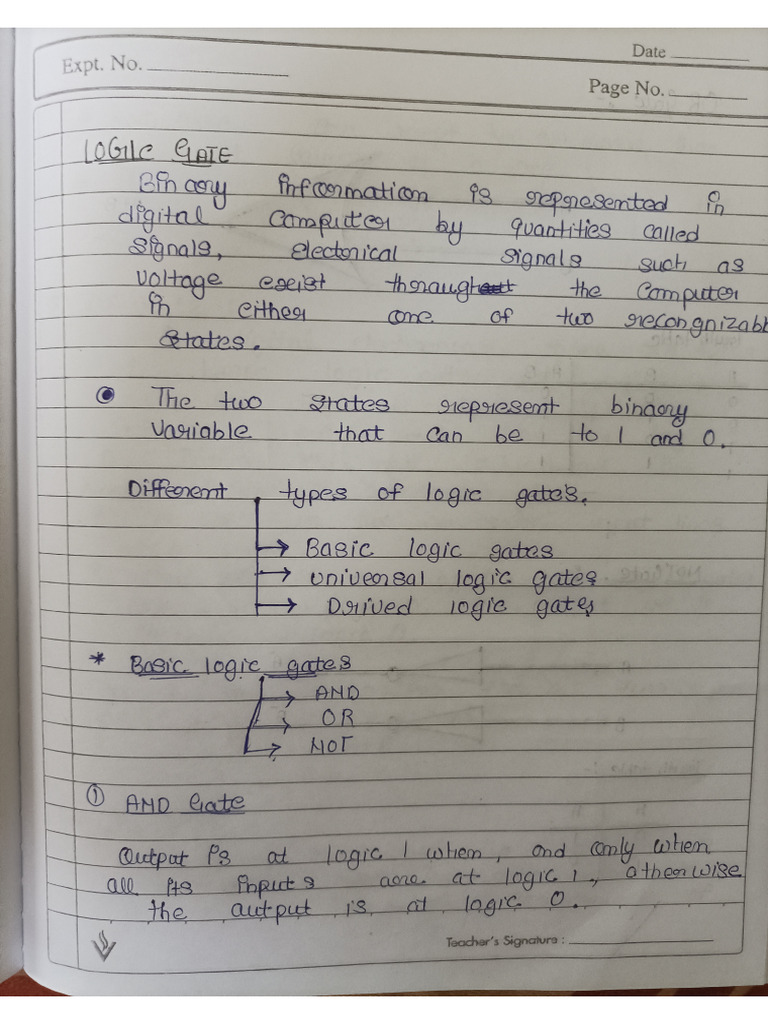 Date
Expt. No.
Page No.
LOGIC GATE
Binary information is represented in
digital computer by quantities called
signals, electorical signals such as
voltage exist throraughout the computer
in either one of two recongnizabl
states.
The two states represent binary
variable that can be to 1 and 0.
Different types of logic gates.
Basic logic gates
universal logic gates
Drived logic gates
* Basic logic gates
AND
OR
NOT
① AND Gate
Output is at logic 1 when, and only when
all its inputs are at logic 1, otherwise
the output is at logic 0.
Teacher's Signature :